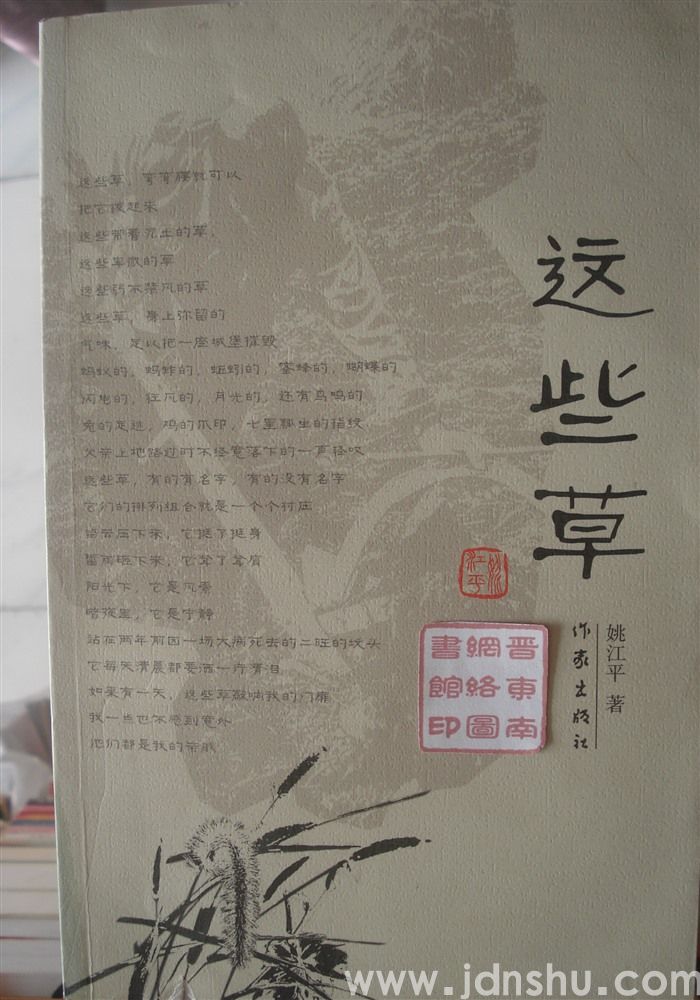 这些草，弯弯腰就可以
把它拔起来
这些带着泥土的草，
这些卑微的草
这些弱不禁风的草
这些草，身上弥留的
气味，足以把一座城堡摧毁
蚂蚁的，蚂蚱的，蚯蚓的，蜜蜂的，蝴蝶的
闪电的，狂风的，月光的，还有鸟鸣的
兔的足迹，鸡的爪印，七里飘虫的指纹
父亲上地路过时不经意落下的一声轻叹
这些草，有的有名字，有的没有名字
它们的排列组合就是一个个村庄
给雪压下来，它挺了挺身
雷雨砸下来，它耸了耸肩
阳光下，它是风景
暗夜里，它是宁静
站在两年前因一场大病死去的二旺的坟头
它每天清晨都要洒一行清泪
如果有一天，这些草敲响我的门扉
我一点也不感到意外
他们都是我的亲戚
这些草
姚江平
姚江平 著
作家出版社
晋東南
網絡圖
書館印
www.jdnshu.com